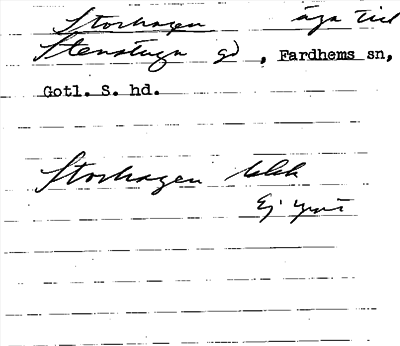 Storhagen äga till
Stenstugu gd, Fardhems sn,
Gotl. S. hd.
Storhagen
Ej